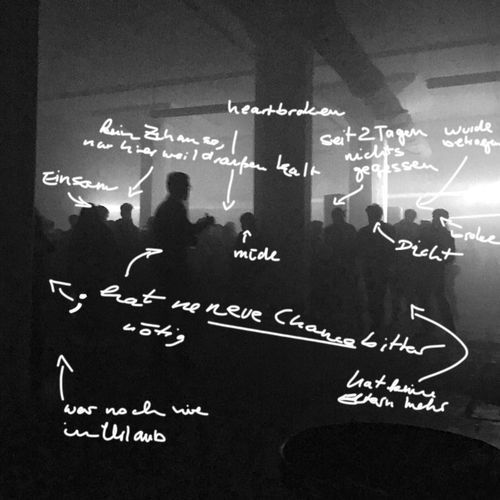 heartbroken
kein Zuhause,
nur hier weil draußen kalt
seit 2 Tagen
nichts
gegessen
wurde
betrogen
Einsam
müde
Dicht
; hat ne neue Chance bitter
nötig
hat keine
Eltern mehr
war noch nie
im Urlaub